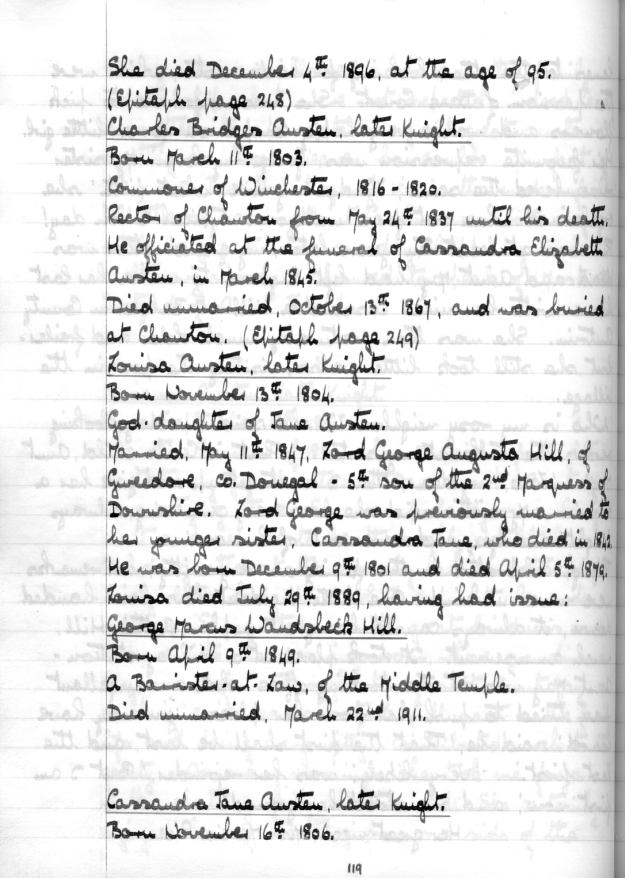 She died December 4th 1896, at the age of 95.
(Epitaph page 248)
Charles Bridges Austen, later Knight.
Born March 11th 1803.
Commoner of Winchester, 1816 - 1820.
Rector of Chawton from May 24th 1837 until his death.
He officiated at the funeral of Cassandra Elizabeth
Austen, in March 1845.
Died unmarried, October 13th 1867, and was buried
at Chawton. (Epitaph page 249)
Louisa Austen, later Knight.
Born November 13th 1804.
God-daughter of Jane Austen.
Married, May 11th 1847, Lord George Augusta Hill, of
Gweedore, co. Donegal - 5th son of the 2nd Marquess of
Downshire. Lord George was previously married to
her younger sister, Cassandra Jane, who died in 1842.
He was born December 9th 1801 and died April 5th 1879.
Louisa died July 29th 1889, having had issue:
George Marcus Wandsbeck Hill.
Born April 9th 1849.
A Barrister-at-Law, of the Middle Temple.
Died unmarried, March 22nd 1911.
Cassandra Jane Austen, later Knight.
Born November 16th 1806.
119